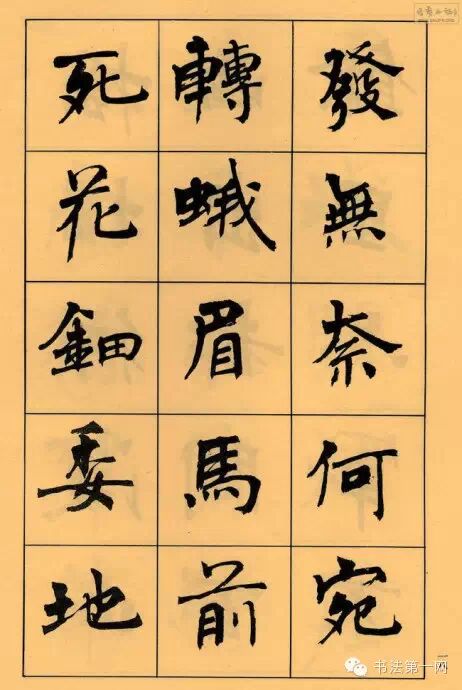 發無奈何宛
轉蛾眉馬前
死花鈿委地
一六
书法第一网